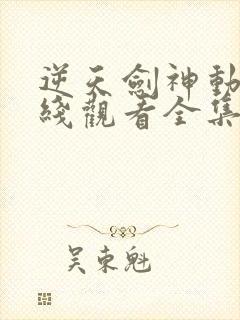 逆天劍神動
綫觀看全集
吴東魁